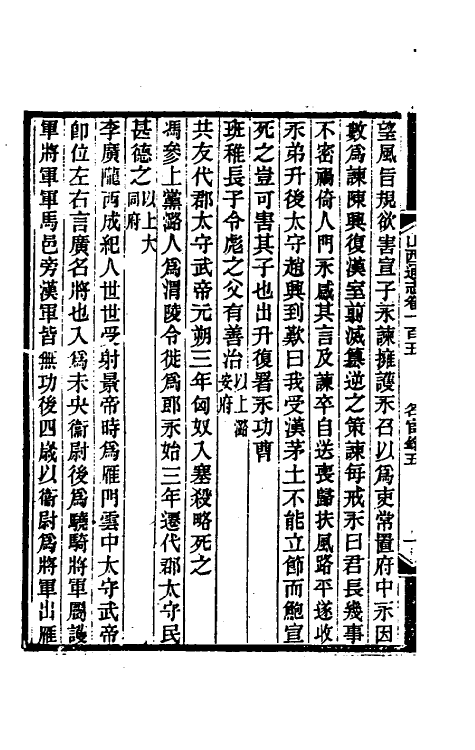 望風旨規欲害宣子永諫擁護永召以爲吏常置府中永因
數爲諫陳興復漢室翦滅簒逆之策諫每戒永曰君長幾事
不密禍倚人門永感其言及諫卒自送喪歸扶風路平遂收
永弟升後太守趙興到歎曰我受漢茅土不能立節而鮑宣
死之豈可害其子也出升復署永功曹
班稚長子令彪之父有善治以上潞安府
共友代郡太守武帝元朔三年匈奴入塞殺略死之
馮參上黨潞人爲渭陵令徙爲郎永始三年遷代郡太守民
甚德之以上大同府
李廣隴西成紀人世世受射景帝時爲雁門雲中太守武帝
卽位左右言廣名將也入爲未央衞尉後爲驍騎將軍關護
軍將軍軍馬邑旁漢軍皆無功後四歲以衞尉爲將軍出雁
山西通志卷一百五 名宦錄五 一